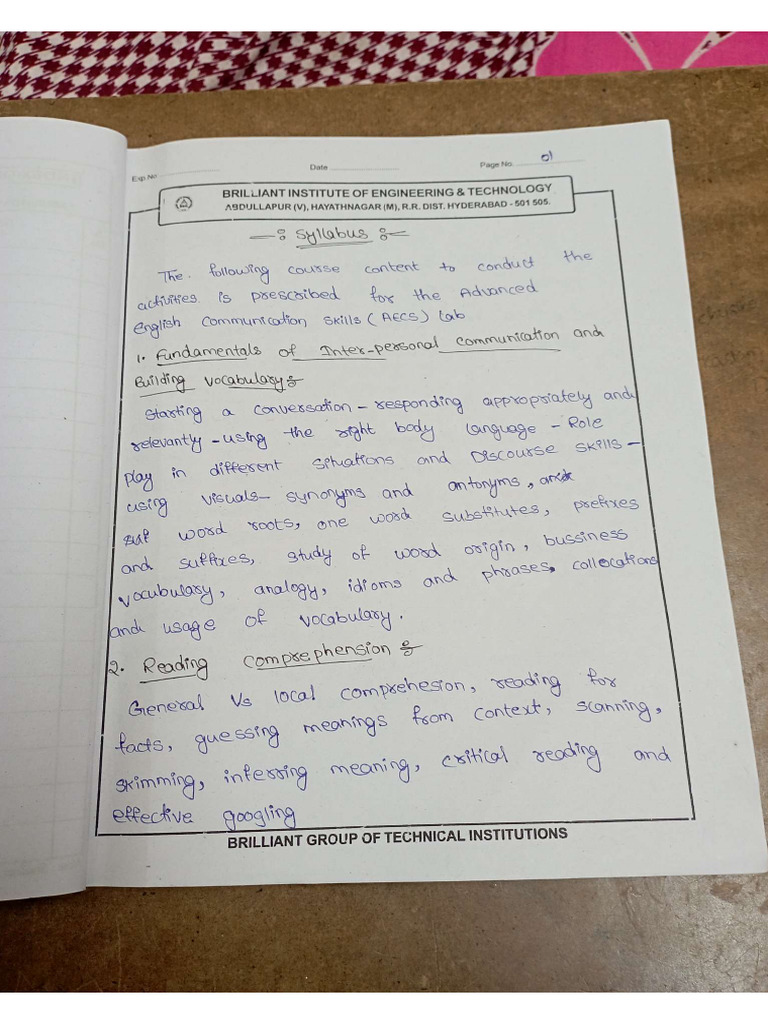 Exp.No
Date
Page No. 01
BRILLIANT INSTITUTE OF ENGINEERING & TECHNOLOGY
ABDULLAPUR (V), HAYATHNAGAR (M), R.R. DIST. HYDERABAD - 501 505.
Syllabus
The following course content to conduct the
activities is prescribed for the Advanced
English Communication Skills (AECS) Lab
1. Fundamentals of Inter-personal Communication and
Building Vocabulary:
Starting a conversation - responding appropriately and
relevantly - using the right body language - Role
play in different situations and Discourse skills -
using visuals - synonyms and antonyms,
word roots, one word substitutes, prefixes
and suffixes, study of word origin, bussiness
vocubulary, analogy, idioms and phrases, collocations
and usage of vocabulary.
2. Reading Comprephension:
General Vs local comprehesion, reading for
facts, guessing meanings from context, scanning,
skimming, inferring meaning, critical reading and
effective googling
BRILLIANT GROUP OF TECHNICAL INSTITUTIONS